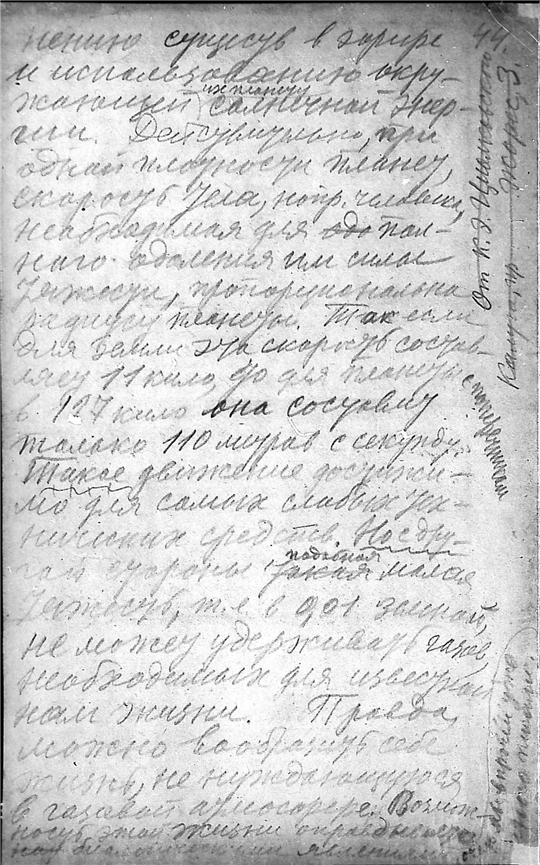 44.
нению существ в эфире
и использованию окру-
жающей их планету солнечной энер-
гии. Действительно, при
одной плотности планет,
скорость тела, напр. человека,
необходимая для одо пол-
ного одоления им силы
тяжести, пропорциональна
радиусу планеты. Так если
для Земли эта скорость состав-
ляет 11 кило, то для планеты
в 127 кило она составит
только 110 метров с секунду.
Такое движение достижи-
мо для самых слабых тех-
нических средств. Но с дру-
гой стороны такая подобная малая
тяжесть, т.е. в 0,01 земной,
не может удерживать газов,
необходимых для известной
нам жизни. Правда,
можно вообразить себе
жизнь, не нуждающуюся
в газовой атмосфере. Возмож-
ность этой жизни оправдывается
От К. Э. Циолковского
Калуга, ул. Жорес, 3.